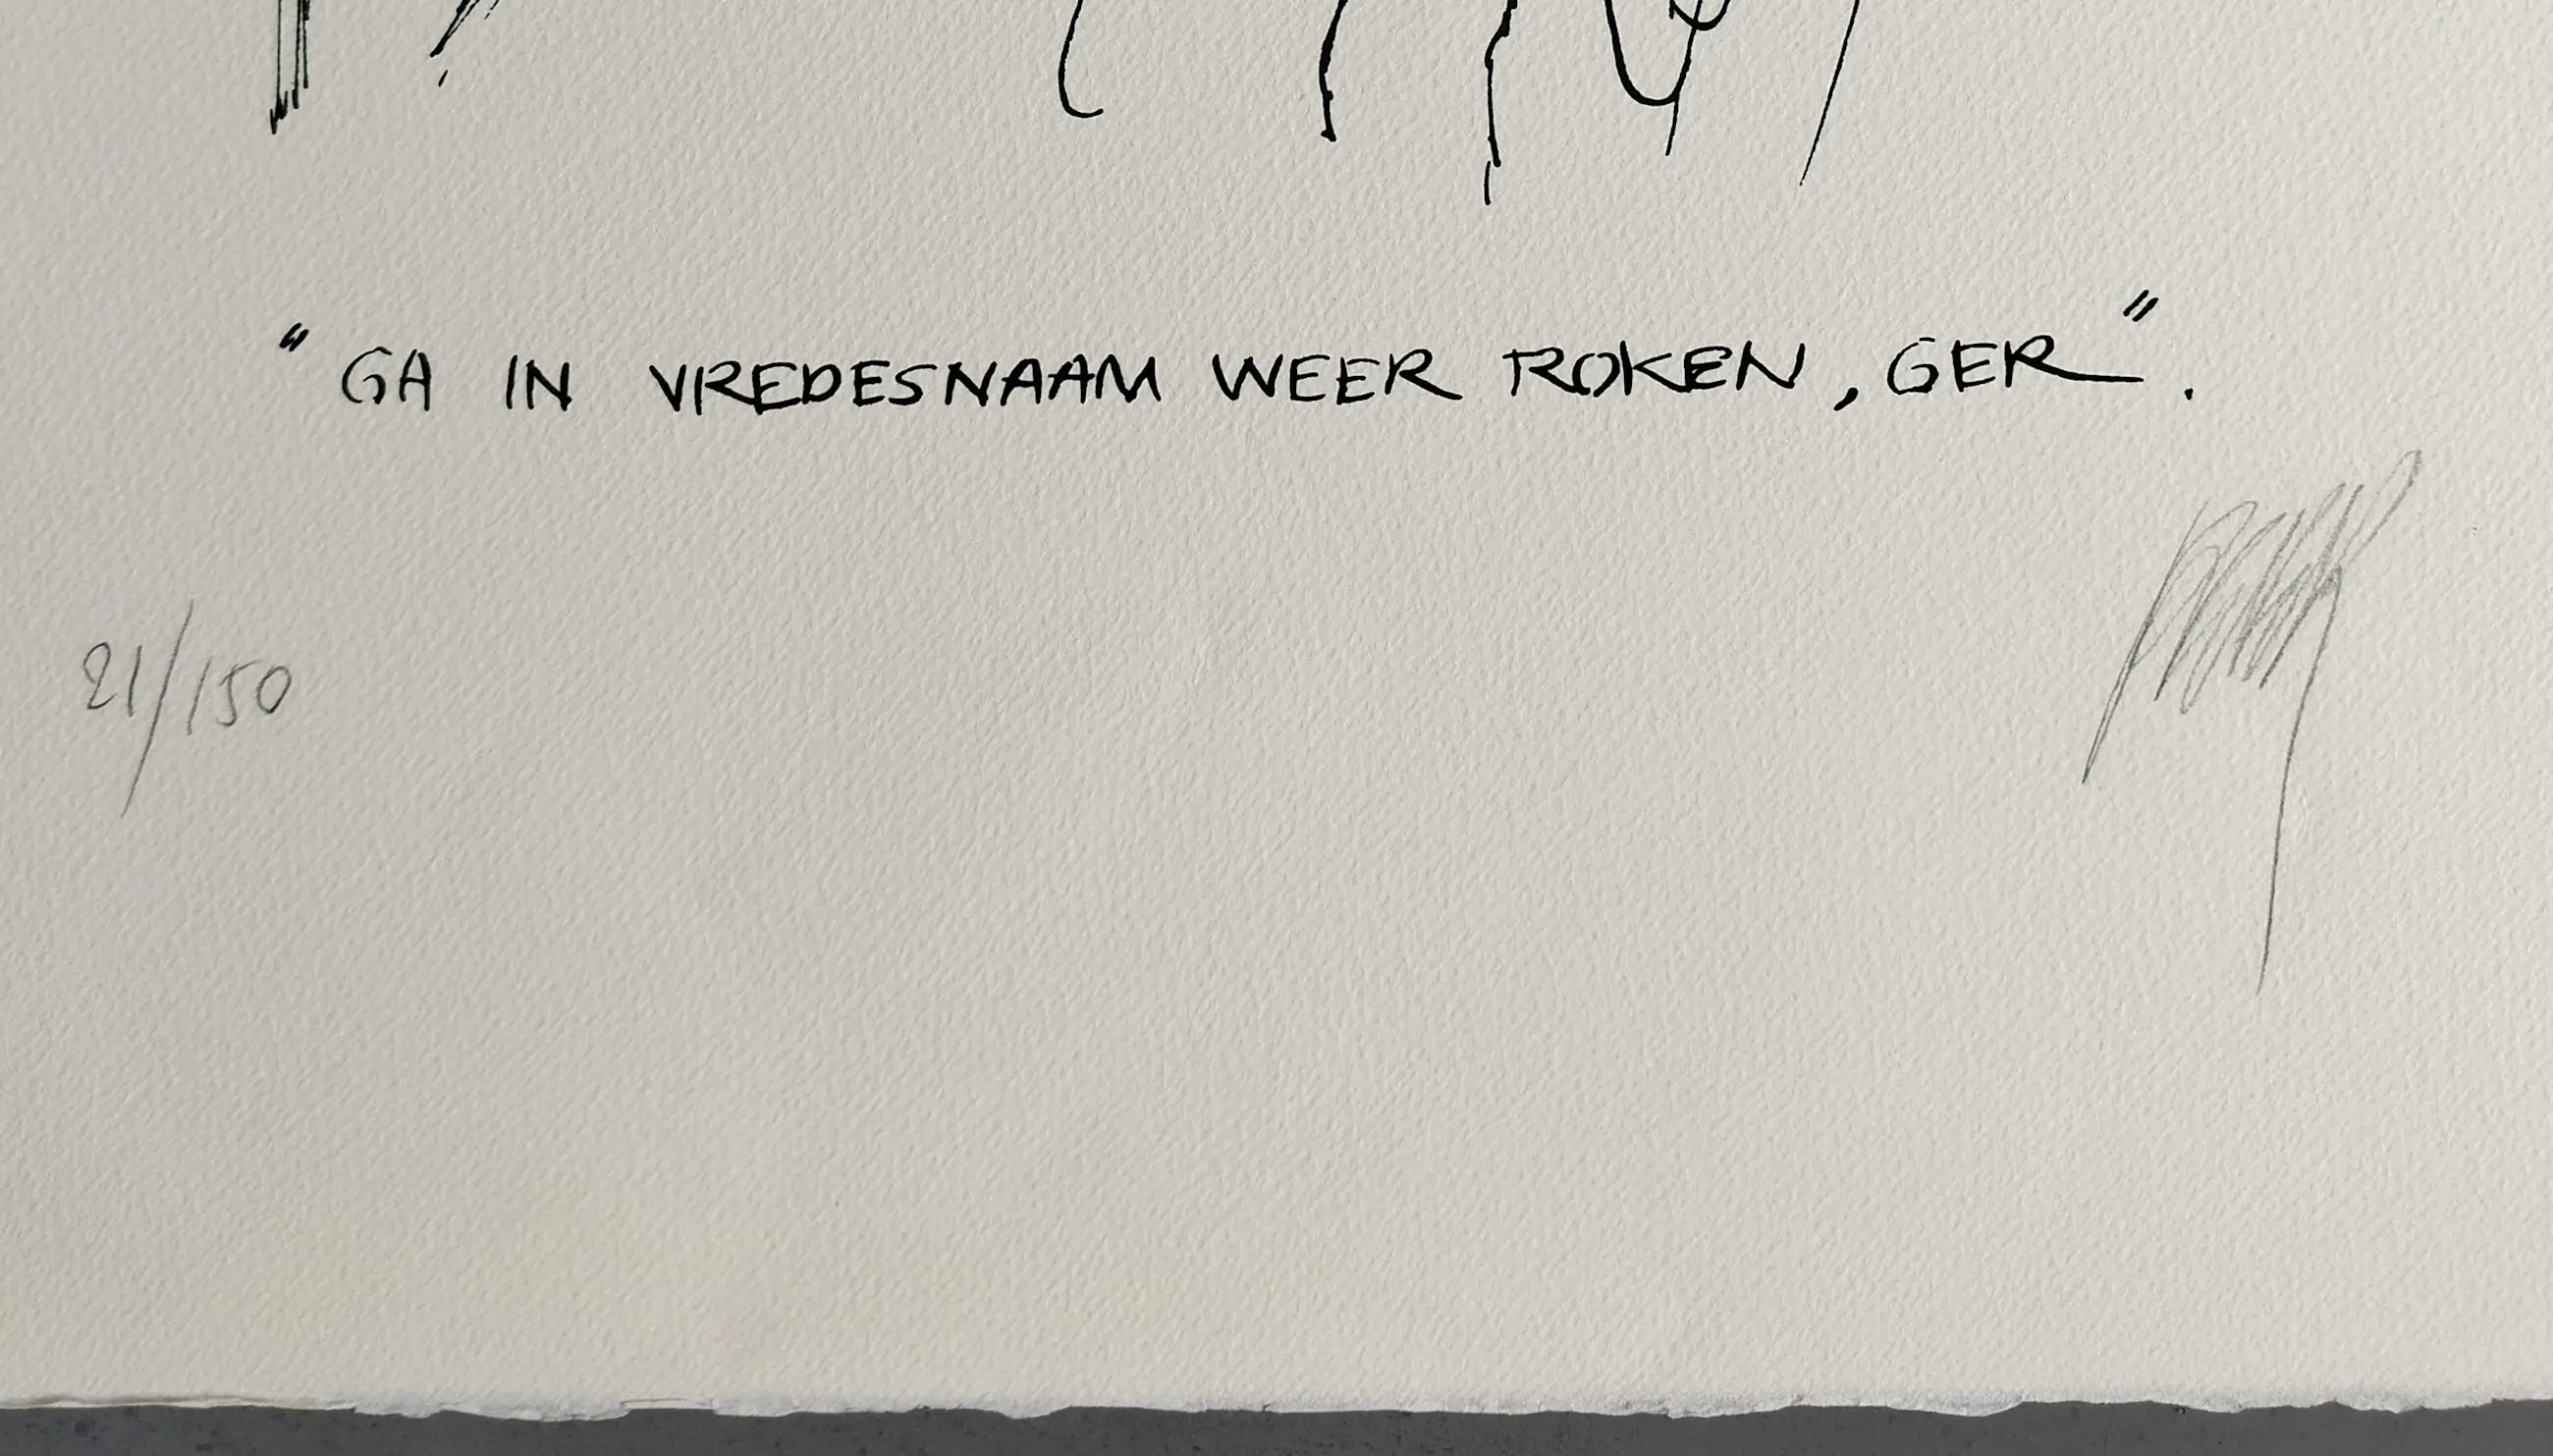 "GA IN VREDESNAAM WEER ROKEN, GER".
21/150